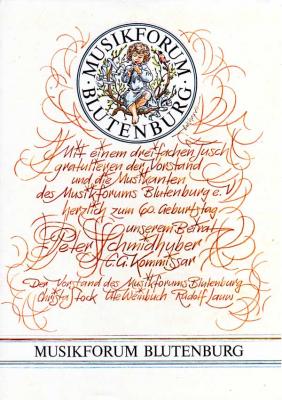 MUSIKFORUM
BLUTENBURG
Mit einem dreifachen Tusch
gratulieren der Vorstand
und die Musikanten
des Musikforums Blutenburg e.V.
herzlich zum 60. Geburtstag
unserem Beirat
Peter Schmidhuber
E.G. Kommissar
Der Vorstand des Musikforums Blutenburg
Christa Stock Ute Weinbuch Rudolf Saus
MUSIKFORUM BLUTENBURG